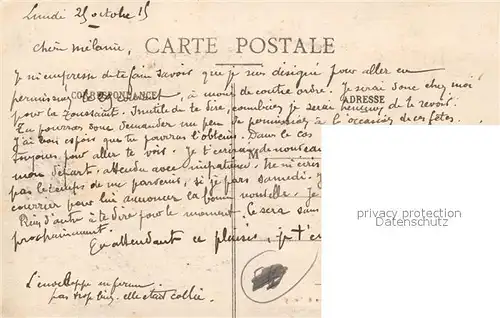 Lundi 25 octobre 15
Chère Mélanie,
CARTE POSTALE
Je m'empresse de te faire savoir que je suis désigné pour aller en
CORRESPONDANCE
permission le, à moins de contre ordre. Je serai donc chez moi
ADRESSE
pour la Toussaint. Inutile de te dire, combien je serai heureux de te revoir.
Tu pourras donc demander un peu de permission à l'occasion de ces fêtes.
J'ai bon espoir que tu pourras l'obtenir. Dans le cas
M
toujours pour aller te voir. Je t'écrirai de nouveau
mon départ, attendu avec impatience. Ne m'écris
pas le temps de me parvenir, si je pars samedi. J
courrier pour lui annoncer la bonne nouvelle. Je
Rien d'autre à te dire pour le moment. Ce sera sans
prochainement.
En attendant ce plaisir, je t'e
L'enveloppe en ferme
pas trop bien. elle était collée.
privacy protection
www.delcampe.net